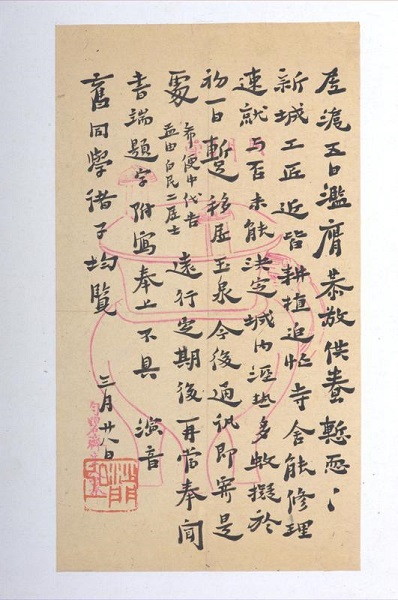 居滬五日濫膺恭敬供養慙恧〻
新城工匠近皆耕植迫忙寺舍能修理
速就与否未能決定城内溼熱多蚊擬於
初一日暫移居玉泉今後通訊即寄是
處
希便中代告
益由白民二居士
遠行定期後再當奉聞
書端題字附寫奉上不具 演音
舊同學偖子均覽
三月廿八日